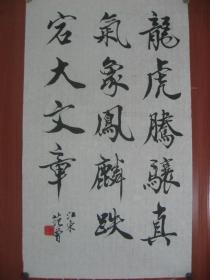 龍虎騰驤真
氣象鳳麟跌
宕大文章
江東范曾